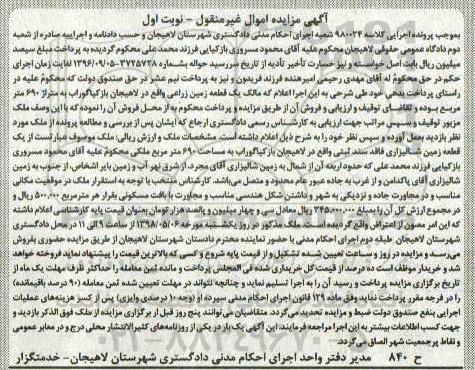 آگهی مزایده اموال غیرمنقول - نوبت اول
بموجب پرونده اجرایی کلاسه ۹۸۰۰۲۴ شعبه اجرای احکام مدنی دادگستری شهرستان لاهیجان و حسب دادنامه و اجراییه صادره از شعبه
دوم دادگاه عمومی حقوقی لاهیجان محکوم علیه آقای محمود مسروری بازکیایی فرزند محمد علی محکوم گردیده به پرداخت مبلغ سیصد
میلیون ریال بابت اصل خواسته و نیز خسارت تأخیر تأدیه از تاریخ سررسید حواله بشماره ۳۷۲۵۷۲۸-۱۳۹۶/۰۹/۰۵ لغایت زمان اجرای
حکم در حق محکوم له آقای مهدی رحیمی امیرهنده فرزند فریدون و نیز به پرداخت نیم عشر در حق صندوق دولت که محکوم علیه در
راستای پرداخت بدهی خود طی شرحی به این اجرا اعلام که مالک یک قطعه زمین زراعی واقع در لاهیجان بازکیاگوراب به متراژ ۶۹۰ متر
مربع بوده و تقاضای توقیف و ارزیابی و فروش آن از طریق مزایده و پرداخت محکوم به از محل فروش آن را نموده که با این وصف ملک
مزبور توقیف و سپس مراتب جهت ارزیابی به کارشناس رسمی دادگستری ارجاع که ایشان پس از بررسی و مطالعه پرونده از ملک مورد
نظر بازدید بعمل آورده و سپس نظر خود را به شرح ذیل اعلام داشته است. مشخصات ملک و ارزش ریالی: ملک موصوف عبارتست از یک
قطعه زمین شالیزاری فاقد سند ثبتی واقع در لاهیجان بازکیاگوراب به مساحت ۶۹۰ متر مربع ملکی محکوم علیه آقای محمود مسروری
بازکیایی فرزند محمد علی که حدود اربعه آن از شمال به زمین شالیزاری آقای مجرد، از شرق نهر آب و زمین بایر اشخاص، از جنوب به زمین
شالیزاری آقای پاکدامن و از غرب به جاده عبور عام محدود و متصل می‌باشد. کارشناس منتخب با توجه به استقرار ملک در موقعیت مکانی
مناسب و در مجاورت جاده و نزدیکی به شهر و داشتن شکل هندسی مناسب و مجاورت با بافت مسکونی بقرار هر مترمربع ۵۰۰,۰۰۰ ریال و
در مجموع ارزش کل آن را بمبلغ ۳۴۵,۰۰۰,۰۰۰ ریال معادل سی و چهار میلیون و پانصد هزار تومان بعنوان قیمت پایه کارشناسی اعلام داشته
که این امر مصون از اعتراض واقع گردیده است. ملک مذکور در روز یکشنبه مورخه ۱۳۹۸/۰۵/۰۶ از ساعت ۹ الی ۱۱ در محل دادگستری
شهرستان لاهیجان طبقه دوم اجرای احکام مدنی با حضور نماینده محترم دادستان شهرستان لاهیجان از طریق مزایده حضوری بفروش
می‌رسد و مزایده در روز و ساعت تعیین شده تشکیل و از قیمت پایه شروع و کسی که بالاترین قیمت را پیشنهاد نماید فروخته خواهد
شد و خریدار موظف است ده درصد از قیمت کل خریداری شده فی المجلس پرداخت و مانده ثمن معامله را حداکثر ظرف مهلت یک ماه از
تاریخ برگزاری مزایده پرداخت و رسید آن را به اجرا تسلیم نماید و چنانچه نتواند در مهلت تعیین شده ثمن معامله (۹۰ درصد باقیمانده)
را در فرجه مقرر پرداخت نماید وفق ماده ۱۲۹ قانون اجرای احکام مدنی سپرده او (وجه ۱۰ درصدی واریزی) پس از کسر هزینه‌های عملیات
اجرایی بنفع صندوق دولت ضبط و مزایده تجدید می‌گردد. متقاضیان می‌توانند پنج روز قبل از برگزاری مزایده از ملک فوق الذکر بازدید و
جهت کسب اطلاعات بیشتر به این اجرا مراجعه فرمایند. این آگهی یک بار در یکی از روزنامه‌های کثیرالانتشار محلی درج و در معابر عمومی
و نقاط پرجمعیت شهر الصاق می‌گردد.
ح ۸۴۰ مدیر دفتر واحد اجرای احکام مدنی دادگستری شهرستان لاهیجان- خدمتگزار